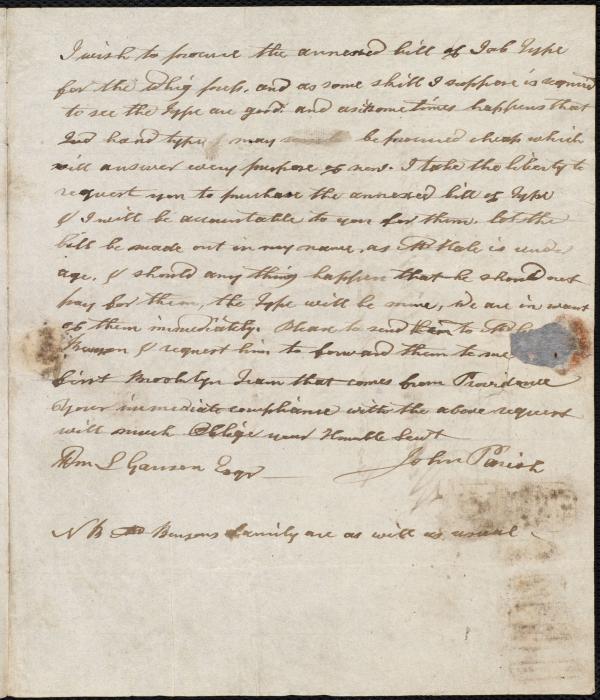 I wish to procure the annexed bill of Job Type
for the Whig press, and as some skill I suppose is required
to see the type are good. and as it sometimes happens that
2nd hand type may be procured cheap which
will answer every purpose of new. I take the liberty to
request you to purchase the annexed bill of Type
& I will be accountable to you for them. let the
bill be made out in my name, as Mr Hale is under
age, & should any thing happen that he should not
pay for them, the Type will be mine, We are in want
of them immediately. Please to send them to Mr
Benson & request him to forward them to me
first Brooklyn Team that comes from Providence
Your immediate compliance with the above request
will much Oblige your Humble Servt
Wm L Garrison Esqr John Parish
N B Bensons family are as will as usual